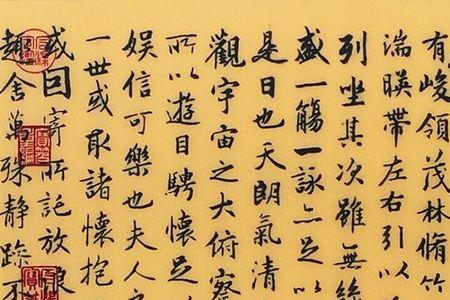 有峻領茂林脩竹
湍暎帶左右引以
列坐其次雖無絲
盛一觴一詠亦足以
是日也天朗氣清
觀宇宙之大俯察
所以遊目騁懷足
娛信可樂也夫人之
一世或取諸懷抱
或因寄所託放浪
趣舍萬殊静躁不